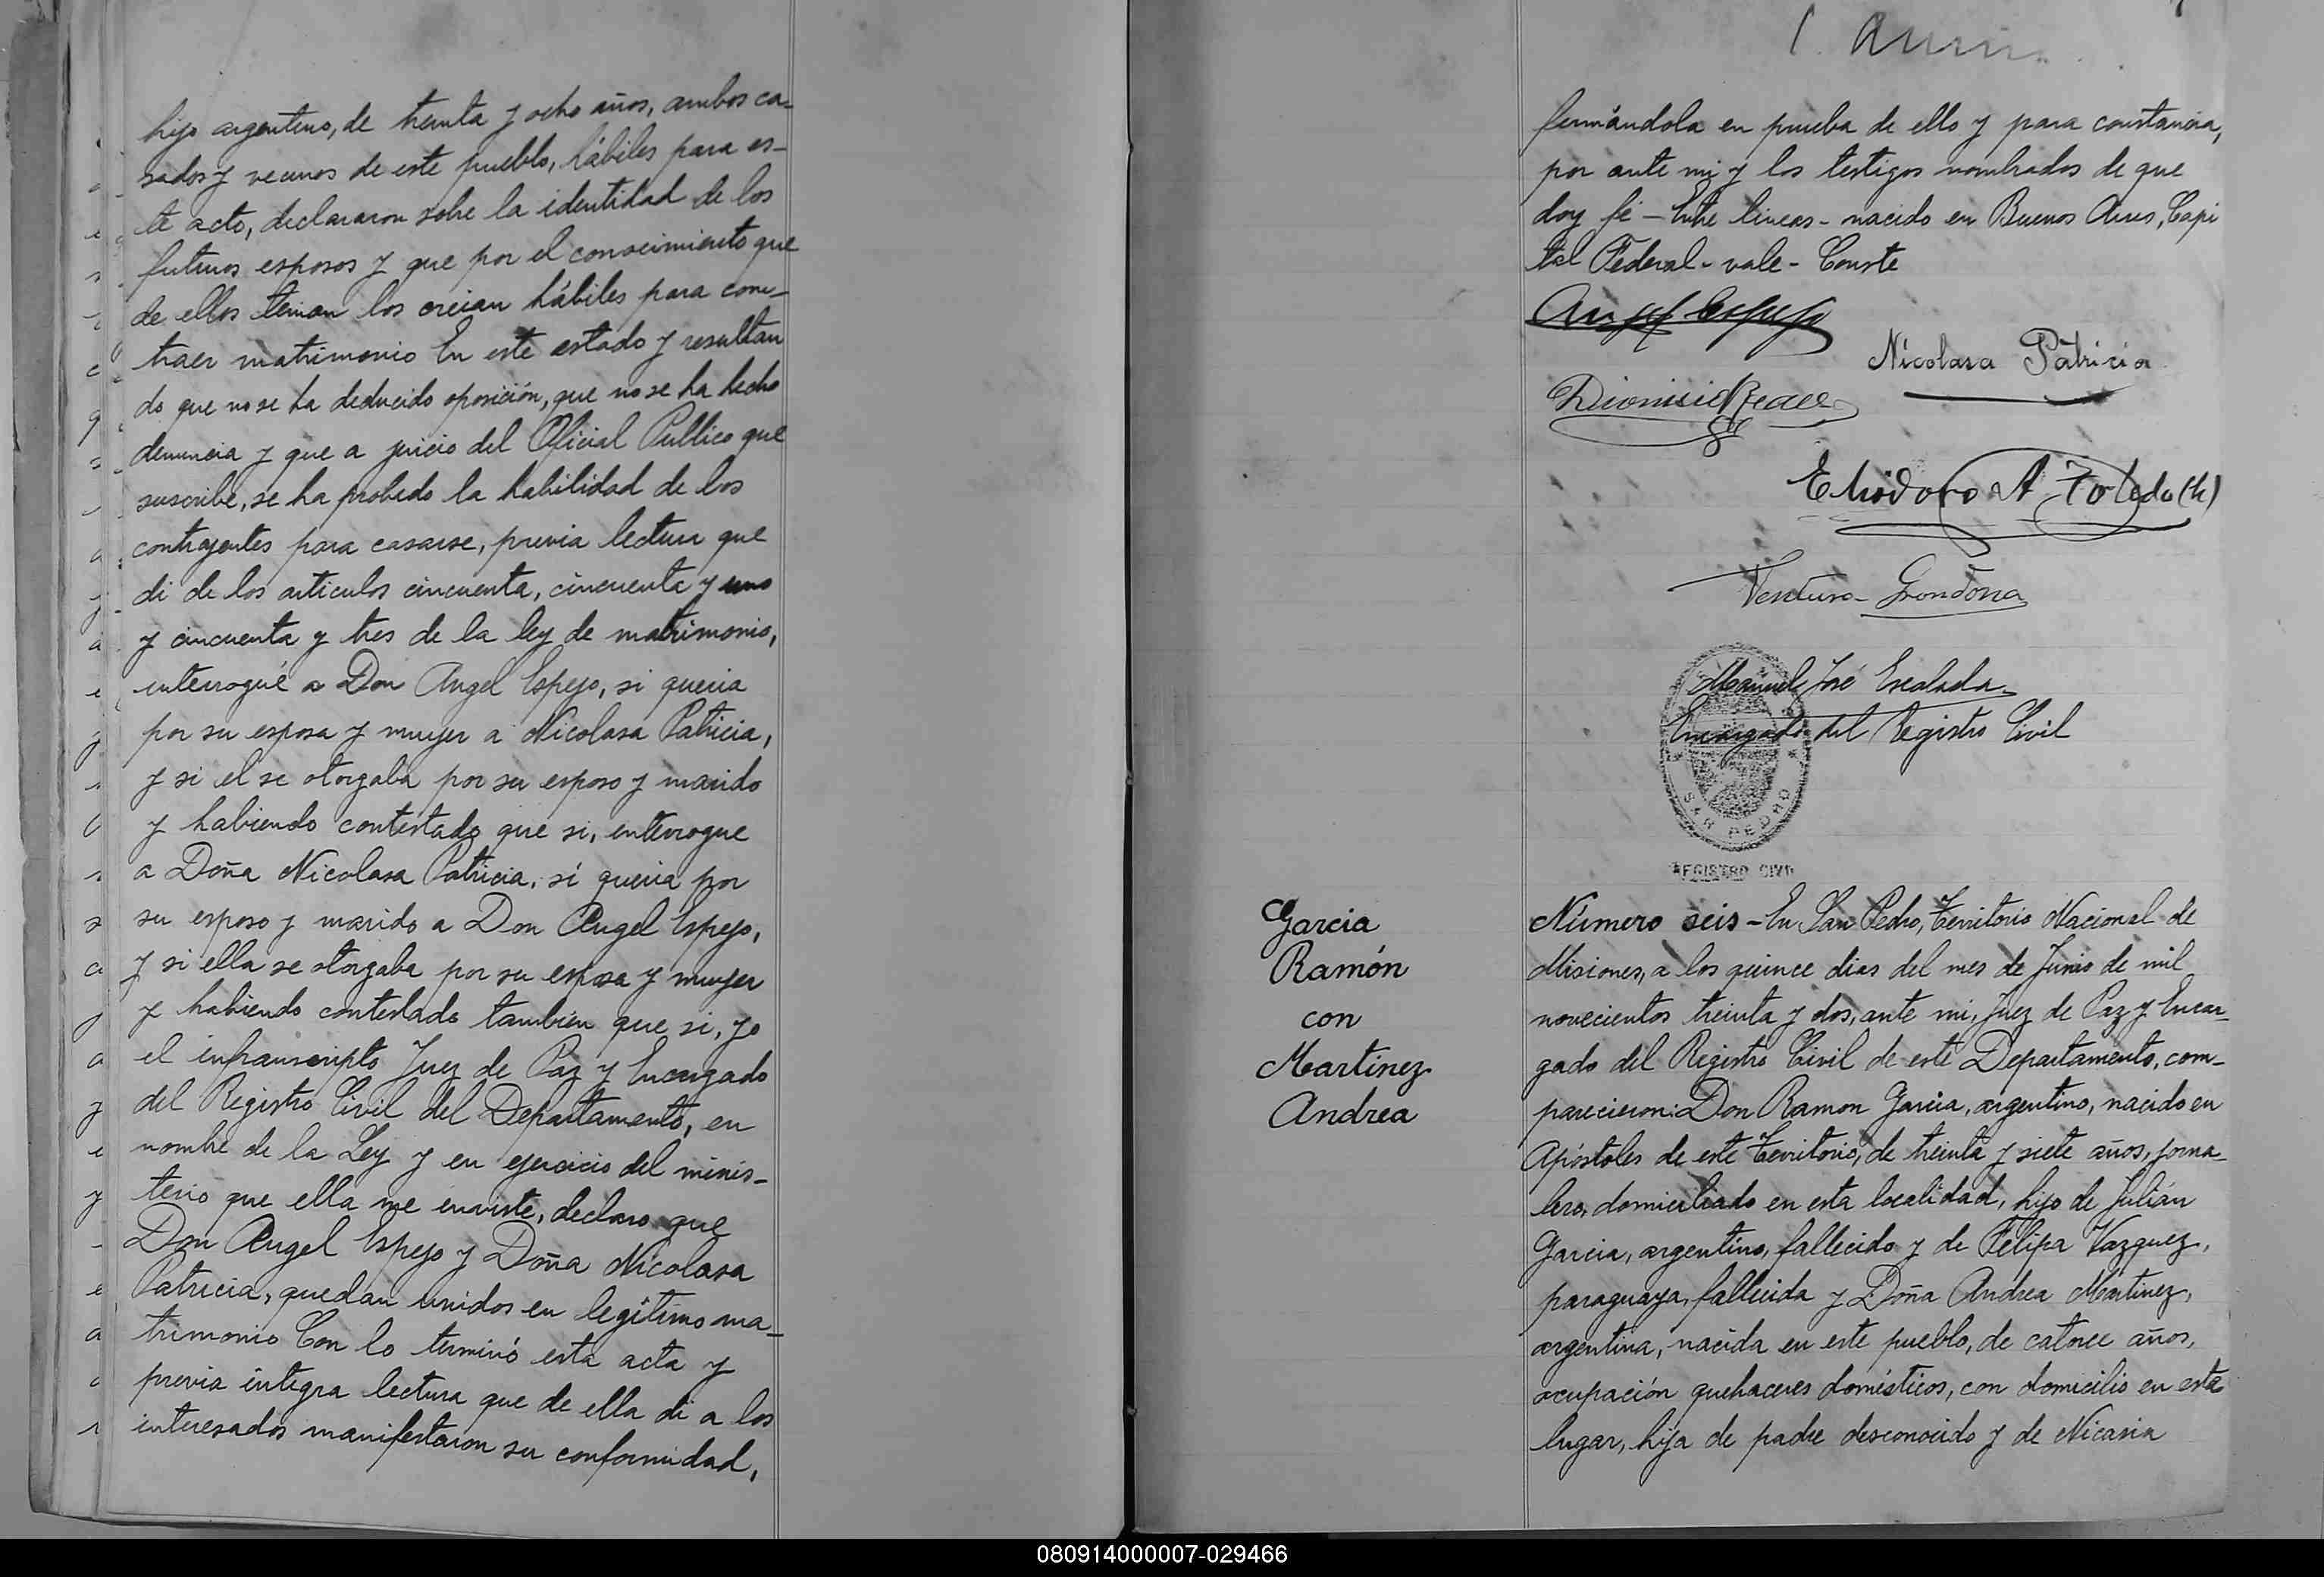 hijo argentino, de treinta y ocho años, ambos ca-
sados y vecinos de este pueblo, hábiles para es-
te acto, declararon sobre la identidad de los
futuros esposos y que por el conocimiento que
de ellos tenian los creian hábiles para con-
traer matrimonio En este estado y resultan
do que no se ha deducido oposición, que no se ha hecho
denuncia y que a juicio del Oficial Publico que
suscribe, se ha probado la habilidad de los
contrayentes para casarse, previa lectura que
di de los articulos cincuenta, cincuenta y uno
y cincuenta y tres de la ley de matrimonio,
interrogué a Don Angel Espejo, si queria
por su esposa y mujer a Nicolasa Patricia,
y si el se otorgaba por su esposo y marido
y habiendo contestado que si, interrogue
a Doña Nicolasa Patricia, si queria por
su esposo y marido a Don Angel Espejo,
y si ella se otorgaba por su esposa y mujer
y habiendo contestado tambien que si, yo
el infranscripto Juez de Paz y Encargado
del Registro Civil del Departamento, en
nombre de la Ley y en ejercicio del minis-
terio que ella me enviste, declaro que
Don Angel Espejo y Doña Nicolasa
Patricia, quedan unidos en legítimo ma-
trimonio Con lo terminó esta acta y
previa integra lectura que de ella di a los
interesados manifestaron su conformidad,
firmándola en prueba de ello y para constancia,
por ante mi y los testigos nombrados de que
doy fé - Entre lineas - nacido en Buenos Aires, Capi
tal Federal - vale - Conste
Angel Espejo
Nicolasa Patricia
Dionisio
Eliodoro A Toledo (h)
Ventura Grondona
Manuel José Escalada
Encargado del Registro Civil
SAN PEDRO
REGISTRO CIVIL
Garcia
Ramón
con
Martinez
Andrea
Número seis - En San Pedro, Territorio Nacional de
Misiones, a los quince dias del mes de Junio de mil
novecientos treinta y dos, ante mi, Juez de Paz y Encar-
gado del Registro Civil de este Departamento, com-
parecieron: Don Ramon Garcia, argentino, nacido en
Apóstoles de este Territorio, de treinta y siete años, jorna-
lero, domiciliado en esta localidad, hijo de Julián
Garcia, argentino, fallecido y de Felipa Vazquez,
paraguaya, fallecida y Doña Andrea Martinez,
argentina, nacida en este pueblo, de catorce años,
ocupación quehaceres domésticos, con domicilio en este
lugar, hija de padre desconocido y de Nicasia
080914000007-029466